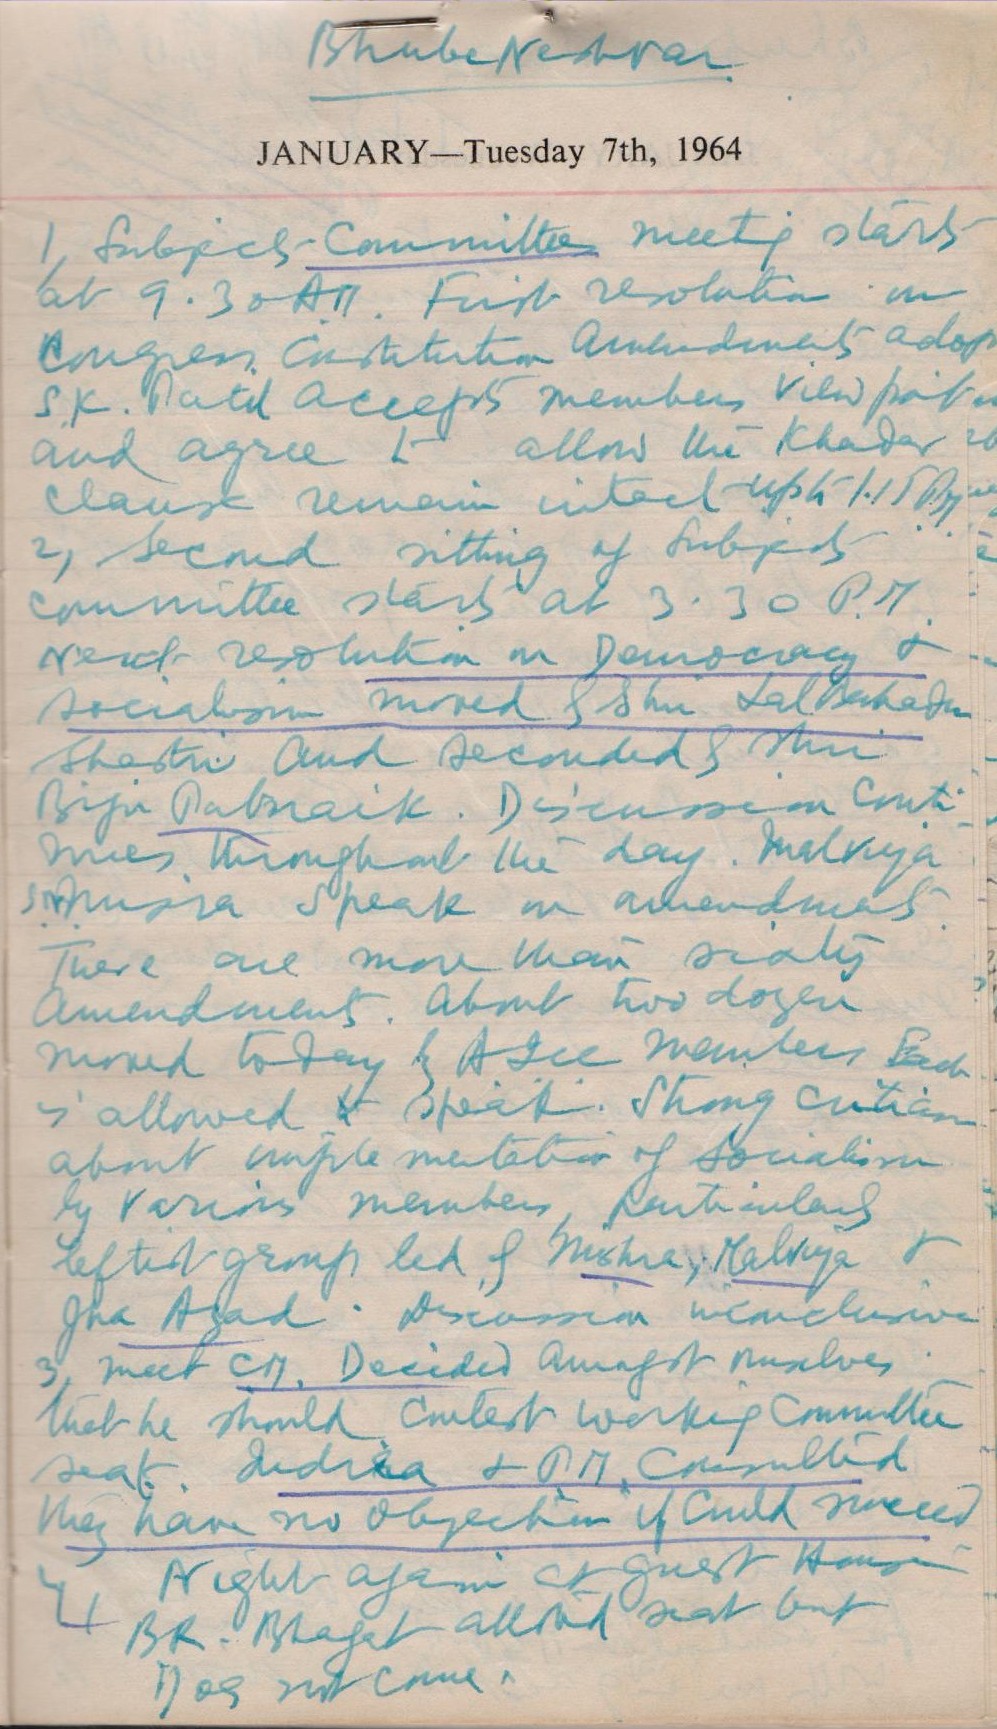 BhubeNeshvar.
JANUARY—Tuesday 7th, 1964
1, Subjects Committee meeting starts
at 9.30 AM. First resolution on
Congress Constitution Amendments adop
S.K. Patil accepts members view point
and agree to allow the Khadar
clause remain intact upto 1.15 PM
2, Second sitting of Subjects
committee starts at 3.30 P.M.
Next resolution on Democracy &
socialism moved by Shri Lal Bahadur
Shastri and seconded by Shri
Biju Patnaik. Discussion Conti-
nues throughout the day. Malviya
Misra speak on amendments.
There are more than sixty
Amendments. About two dozen
moved today by AICC members Each
is allowed to speak. Strong criticism
about implementation of Socialism
by various members, particularly
leftist group led by Mishra, Malviya &
Jha Azad. Discussion inconclusive
3, meet CM. Decided amongst ourselves
that he should contest working Committee
seat. Indira & P.M. Consulted
they have no objection if could succeed
4 Night again at guest House
BR. Bhagat allotted seat but
Does not come.